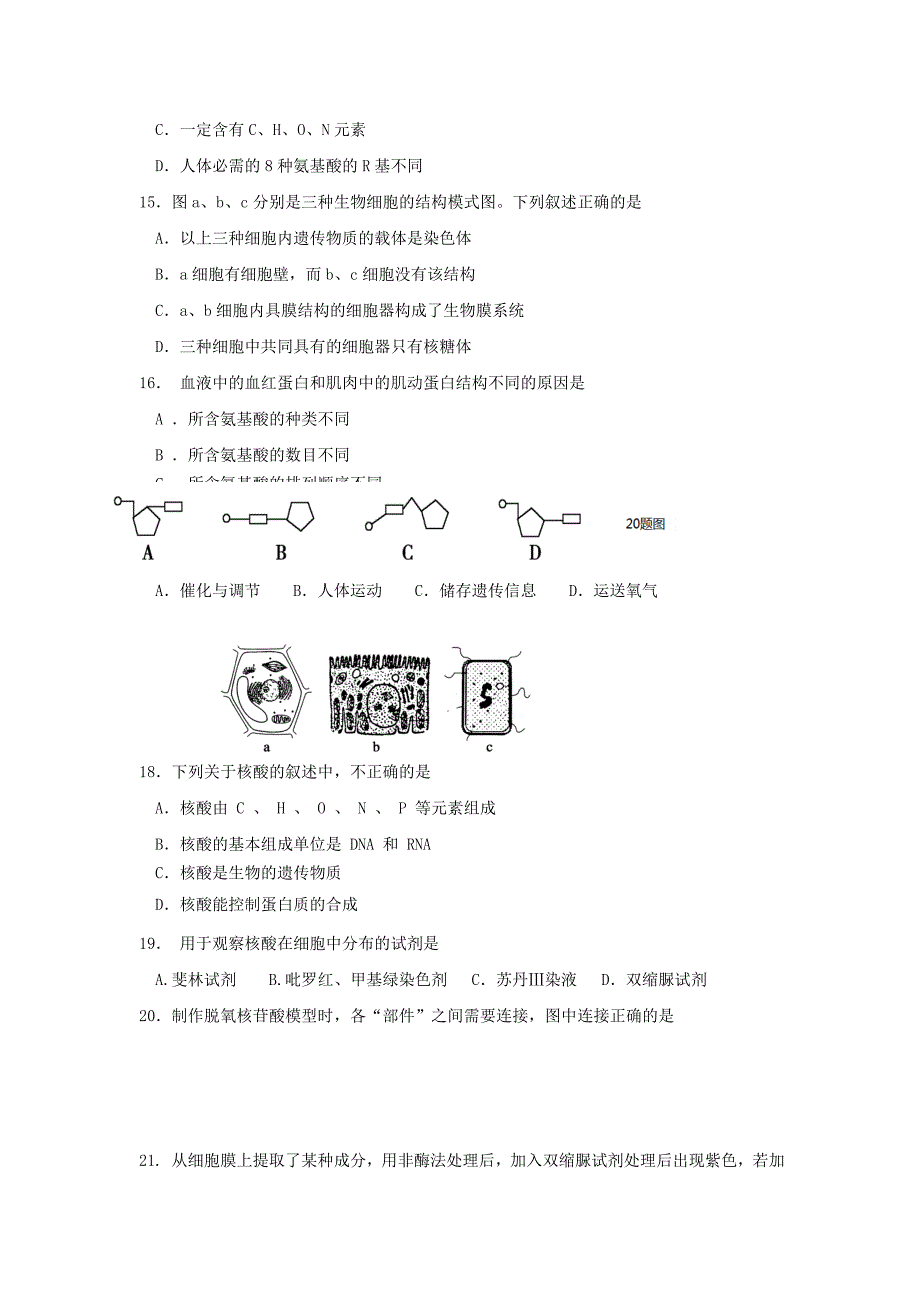 C．一定含有 C、H、O、N 元素
D．人体必需的 8 种氨基酸的 R 基不同
15．图 a、b、c 分别是三种生物细胞的结构模式图。下列叙述正确的是
A．以上三种细胞内遗传物质的载体是染色体
B．a 细胞有细胞壁，而 b、c 细胞没有该结构
C．a、b 细胞内具膜结构的细胞器构成了生物膜系统
D．三种细胞中共同具有的细胞器只有核糖体
16． 血液中的血红蛋白和肌肉中的肌动蛋白结构不同的原因是
A ．所含氨基酸的种类不同
B ．所含氨基酸的数目不同
C ．所含氨基酸的排列顺序不同
A B C D 20题图
A．催化与调节 B．人体运动 C．储存遗传信息 D．运送氧气
a b c
18．下列关于核酸的叙述中，不正确的是
A．核酸由 C 、 H 、 O 、 N 、 P 等元素组成
B．核酸的基本组成单位是 DNA 和 RNA
C．核酸是生物的遗传物质
D．核酸能控制蛋白质的合成
19． 用于观察核酸在细胞中分布的试剂是
A.斐林试剂 B.吡罗红、甲基绿染色剂 C．苏丹Ⅲ染液 D．双缩脲试剂
20．制作脱氧核苷酸模型时，各“部件”之间需要连接，图中连接正确的是
21. 从细胞膜上提取了某种成分，用非酶法处理后，加入双缩脲试剂处理后出现紫色，若加